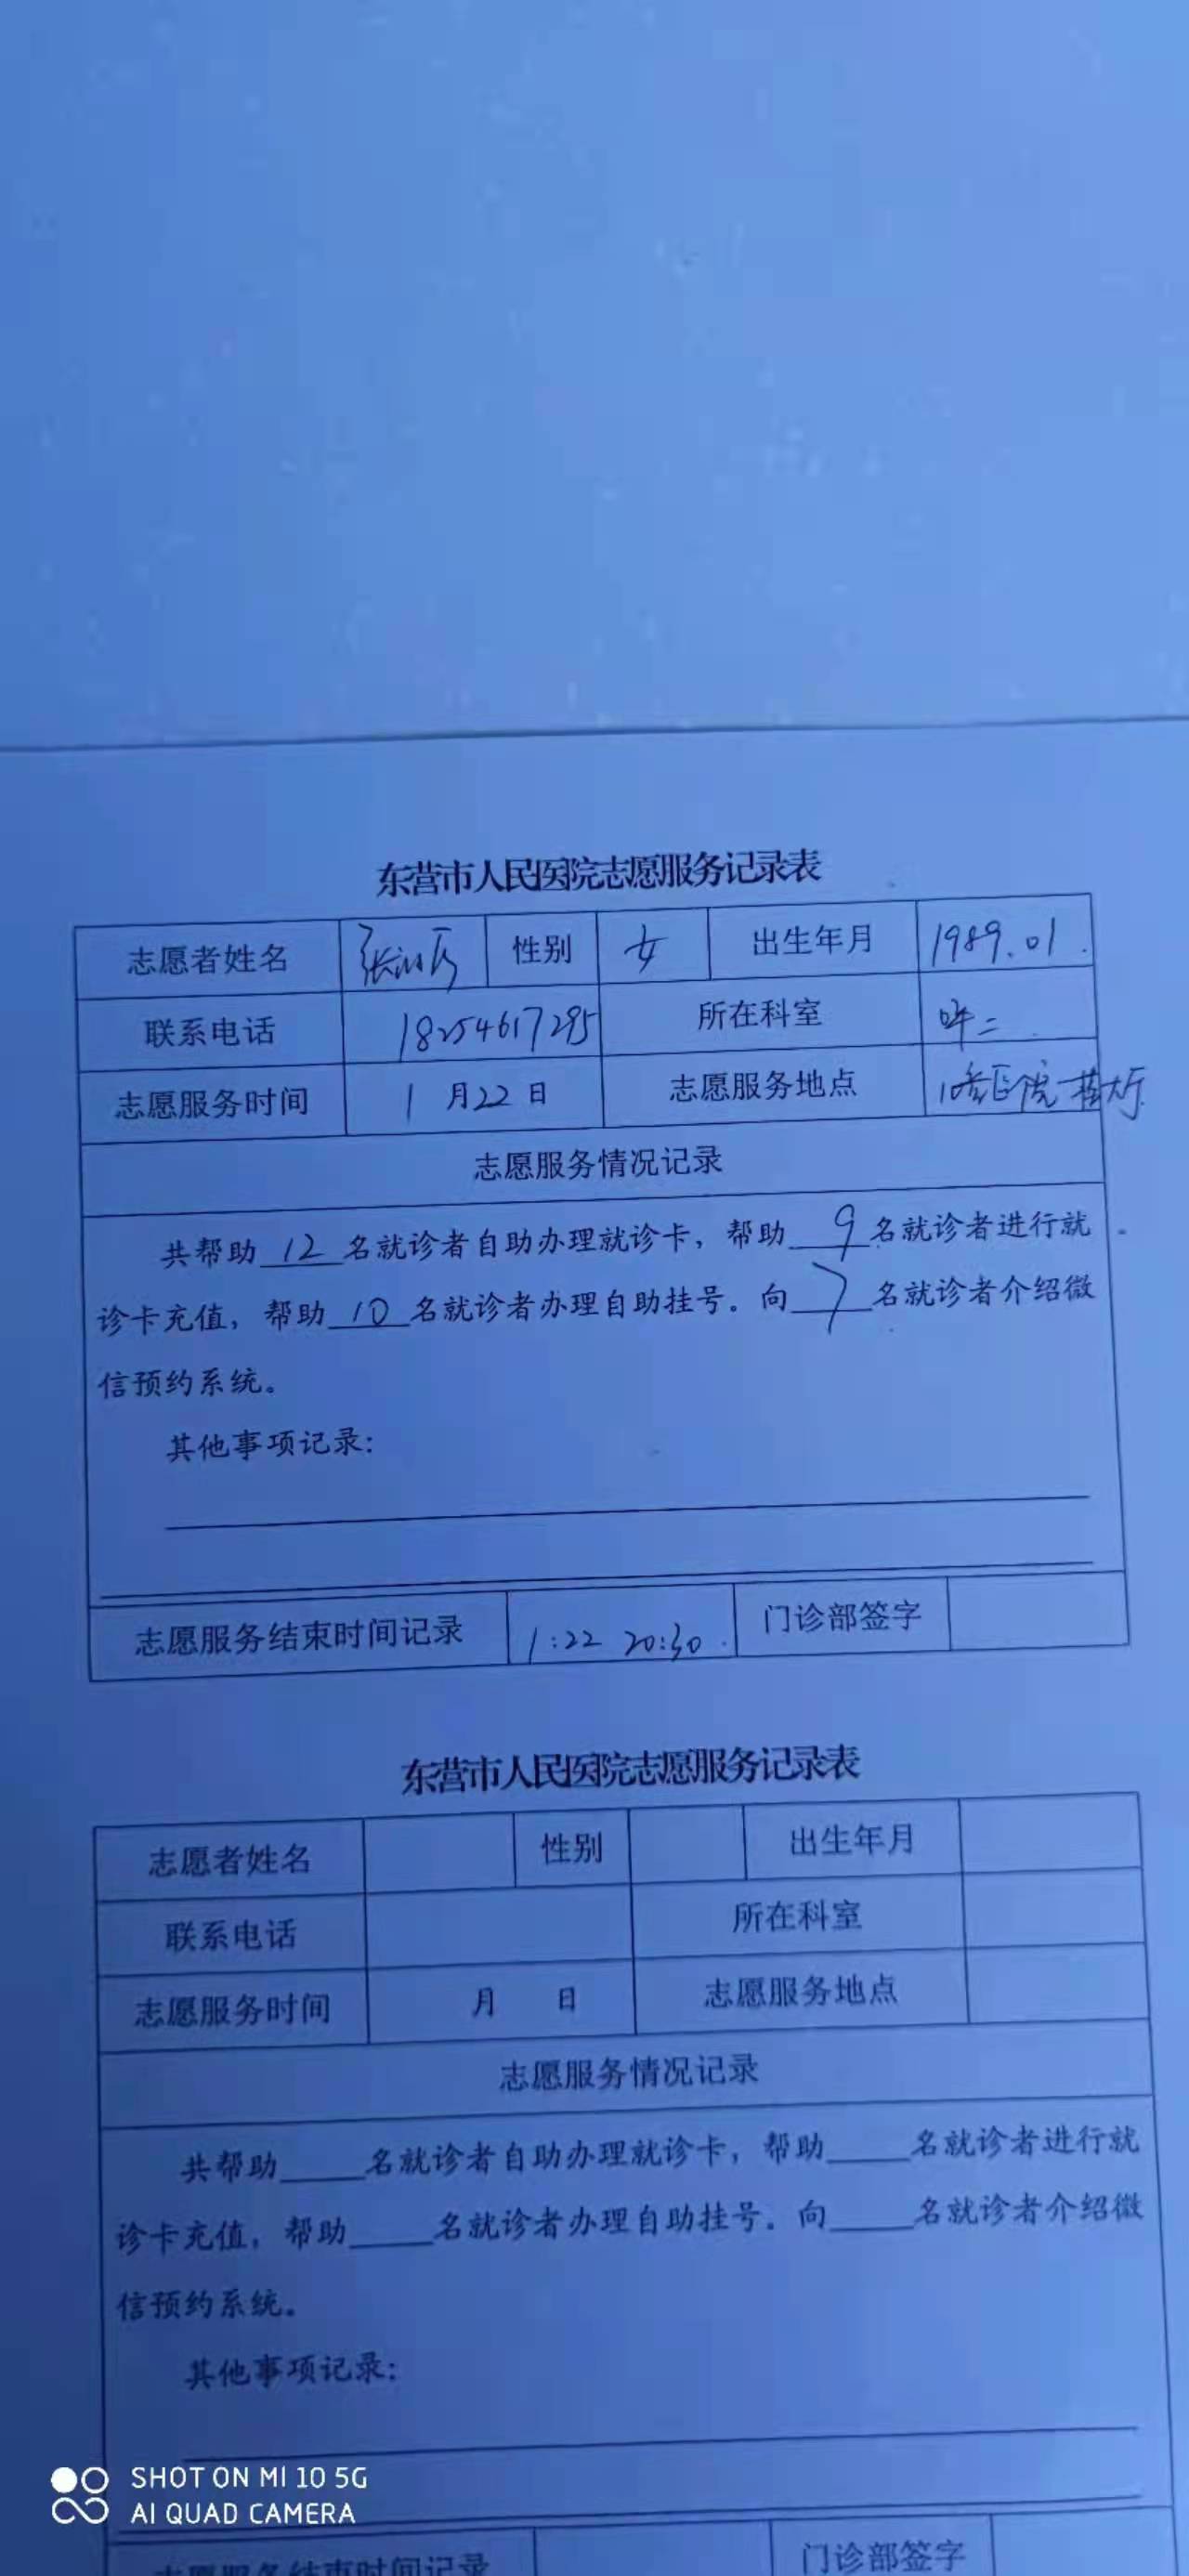 东营市人民医院志愿服务记录表
志愿者姓名 张 性别 女 出生年月 1989.01.
联系电话 18254617295 所在科室 呼二
志愿服务时间 1月22日 志愿服务地点 医院 大厅
志愿服务情况记录
共帮助12名就诊者自助办理就诊卡，帮助9名就诊者进行就
诊卡充值，帮助10名就诊者办理自助挂号。向7名就诊者介绍微
信预约系统。
其他事项记录：
志愿服务结束时间记录 1:22 20:30. 门诊部签字
东营市人民医院志愿服务记录表
志愿者姓名 性别 出生年月
联系电话 所在科室
志愿服务时间 月 日 志愿服务地点
志愿服务情况记录
共帮助____名就诊者自助办理就诊卡，帮助____名就诊者进行就
诊卡充值，帮助____名就诊者办理自助挂号。向____名就诊者介绍微
信预约系统。
其他事项记录：
志愿服务结束时间记录 门诊部签字
SHOT ON MI 10 5G
AI QUAD CAMERA